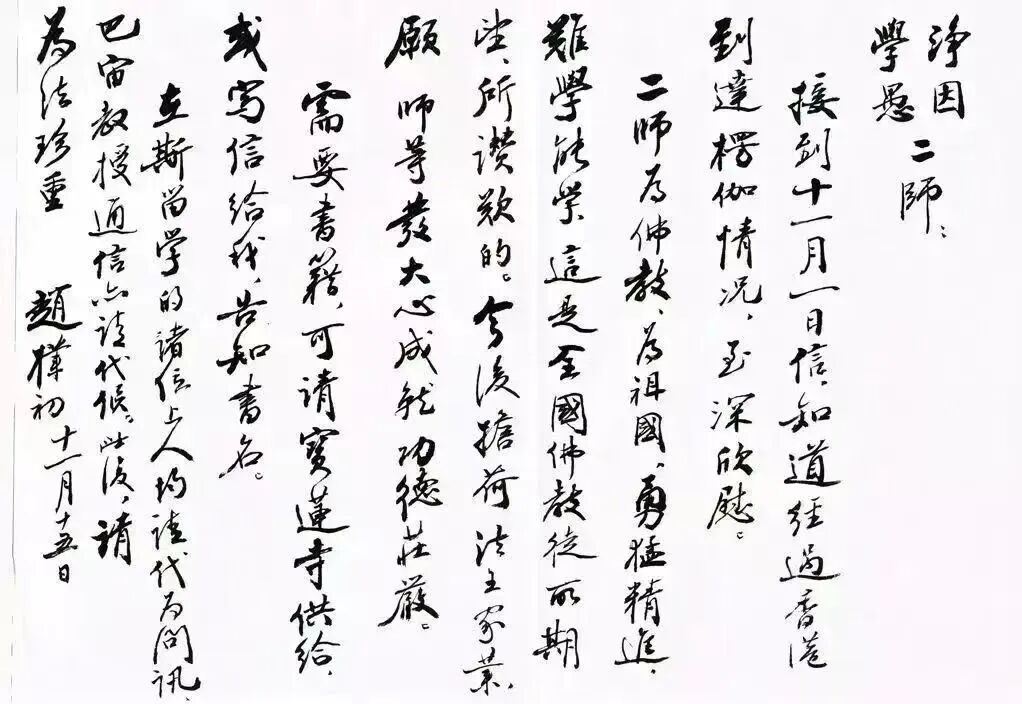 淨因
學愚 二師：
接到十一月一日信，知道經過香港
到達楞伽情况，至深欣慰。
二師為佛教、為祖國，勇猛精進，
難學能學，這是全國佛教徒所期
望、所讚歎的。今後擔荷法王家業，
願 師等發大心成就功德莊嚴。
需要書籍，可請寶蓮寺供給，
或寫信給我，告知書名。
在斯留学的諸位上人均請代為問訊，
巴宙教授通信亦請代候。此後，請
為法珍重
趙樸初 十一月十五日